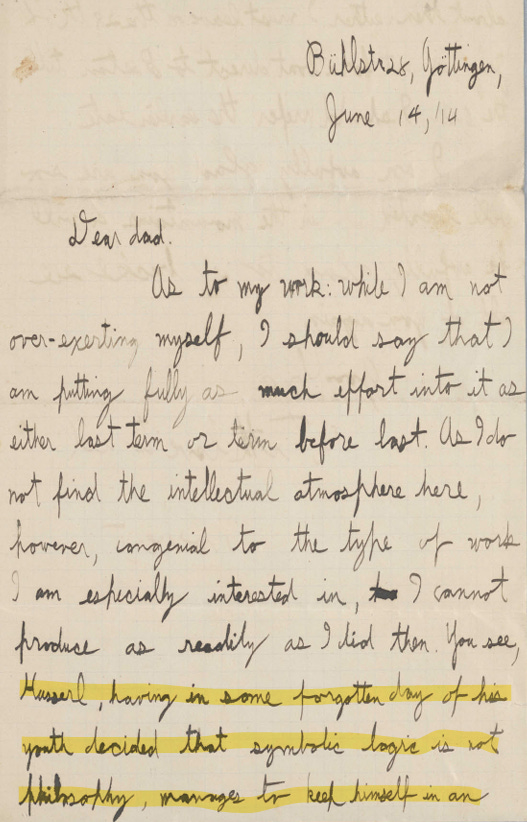 Bühlstr 28, Göttingen,
June 14, '14
Dear dad.
As to my work: while I am not
over-exerting myself, I should say that I
am putting fully as much effort into it as
either last term or term before last. As I do
not find the intellectual atmosphere here,
however, congenial to the type of work
I am especially interested in, I cannot
produce as readily as I did then. You see,
Husserl, having in some forgotten day of his
youth decided that symbolic logic is not
philosophy, manages to keep himself in an